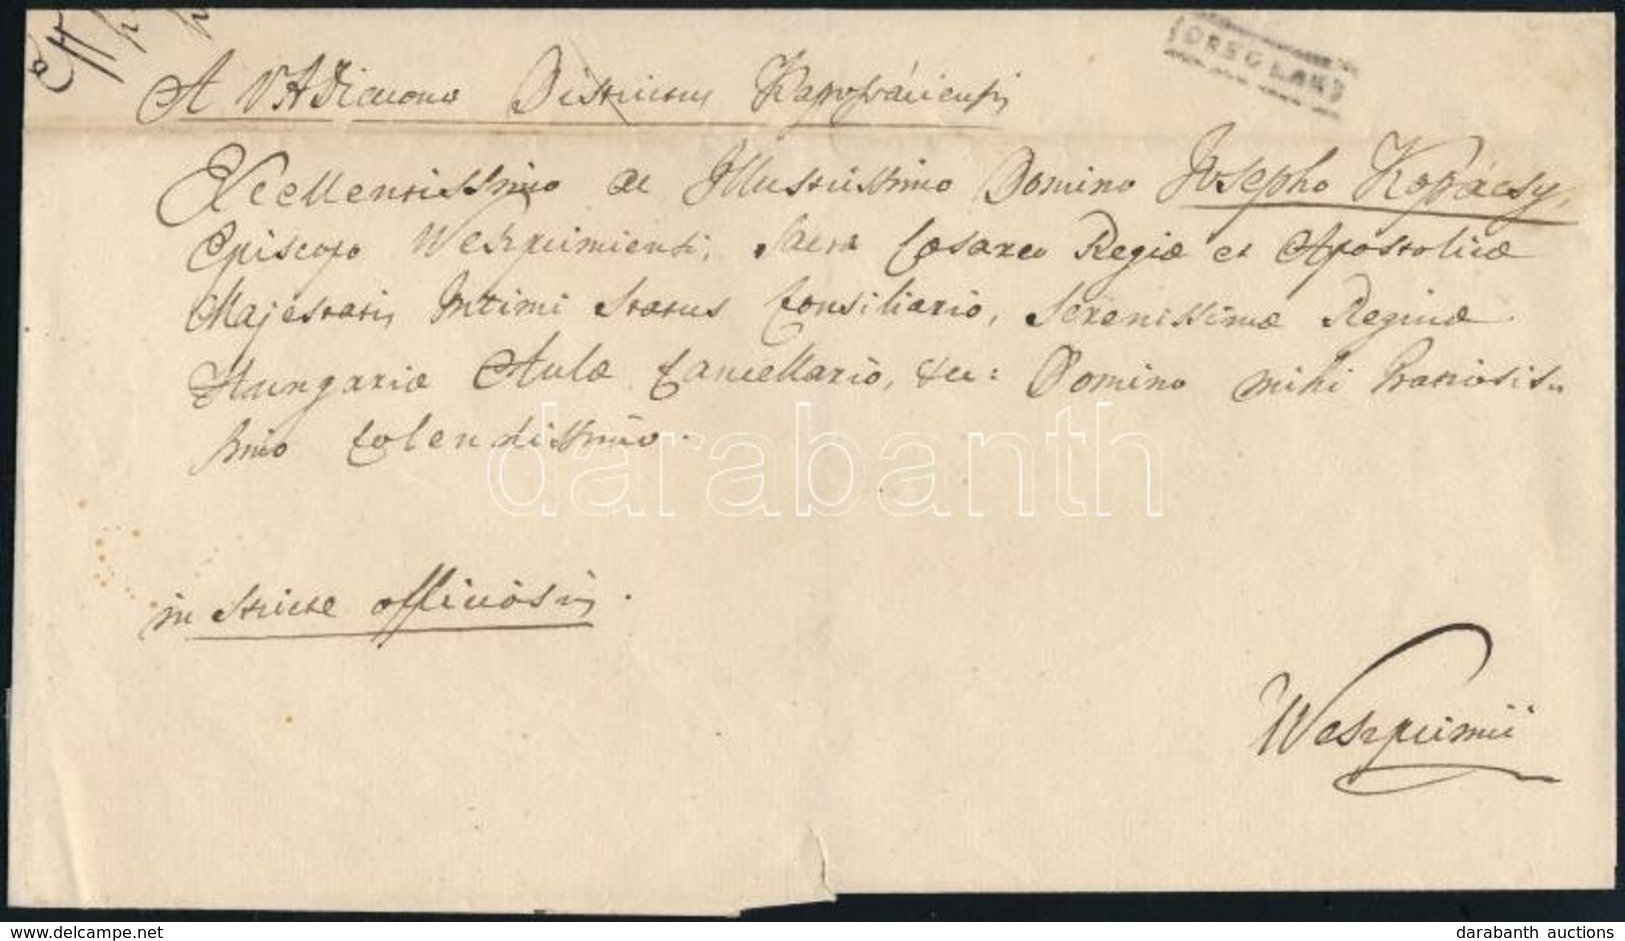 FORSGLAND
A V A Diacono Districtus Kapolcsiensis
Excellentissimo ac Illustrissimo Domino Josepho Kopácsy,
Episcopo Weszprimiensi, Sacræ Cesareo Regiæ et Apostolicæ
Majestatis Intimi Status Consiliario, Serenissimæ Reginæ
Hungariæ Aulæ Cancellario, &cc: Domino mihi Gratiosis-
simo Colendissimo.
darabanth
in stricte officiosis.
Weszprimii
www.delcampe.net
darabanth auctions